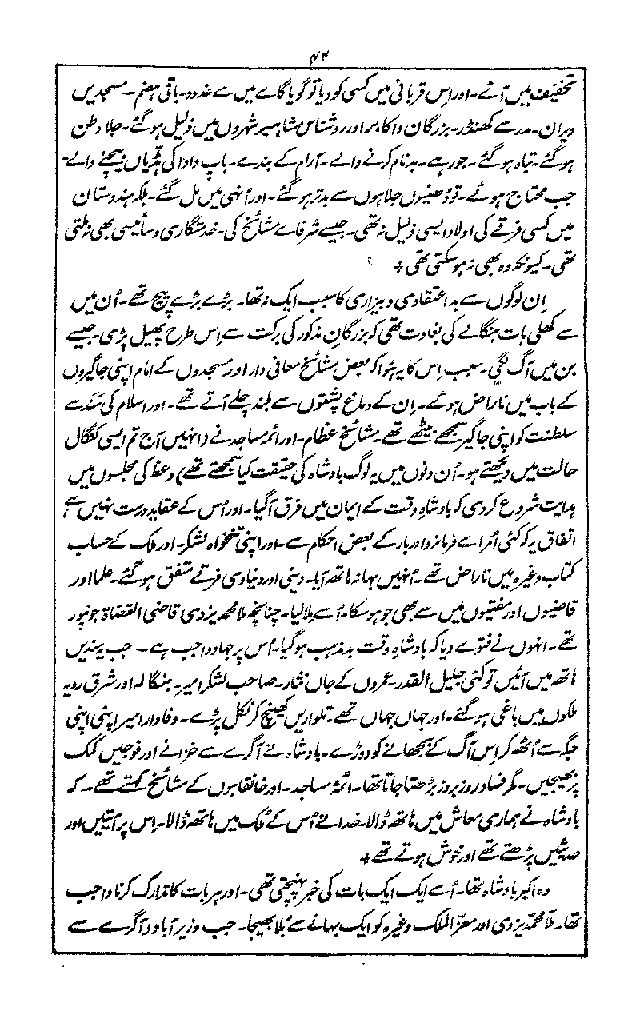 ۴۲
تخفیف میں آئے۔ اور اس قربانی میں کسی کو دیا تو گویا گائے میں سے غدود۔ باقی ہضم۔ مسجدیں
ویران۔ مدرسے کھنڈر۔ بزرگان و اکابر اور روشناس مشاہیر شہروں میں ذلیل ہو گئے۔ جلا وطن
ہو گئے۔ تباہ ہو گئے۔ جو رہے۔ بدنام کرنے والے۔ آرام کے بندے۔ باپ دادا کی ہڈیاں بیچنے والے۔
جب محتاج ہوئے۔ تو دھنیوں جلاہوں سے بدتر ہو گئے۔ اور اُنہی میں مل گئے۔ بلکہ ہندوستان
میں کسی فرقے کی اولاد ایسی ذلیل نہ تھی۔ جیسے شرفائے مشائخ کی۔ خدمتگاری و سائیسی بھی نہ ملتی
تھی۔ کیونکہ وہ بھی نہ ہو سکتی تھی +
اِن لوگوں سے بد اعتقادی و بیزاری کا سبب ایک نہ تھا۔ بڑے بڑے پیچ تھے۔ اُن میں
سے کھلی بات بنگالے کی بغاوت تھی کہ بزرگانِ مذکور کی برکت سے اِس طرح پھیل پڑی۔ جیسے
بن میں آگ لگی۔ سبب اِس کا یہ ہُوا کہ بعض مشائخ معافی دار اور مسجدوں کے امام اپنی جاگیروں
کے باب میں ناراض ہوئے۔ اِن کے دماغ پشتوں سے بلند چلے آتے تھے۔ اور اسلام کی سند سے
سلطنت کو اپنی جاگیر سمجھے بیٹھے تھے۔ مشائخ عظام۔ اور ائمہ مساجد نے (اُنہیں آج تم ایسی کنگال
حالت میں دیکھتے ہو۔ اُن دنوں میں یہ لوگ بادشاہ کی حقیقت کیا سمجھتے تھے) وعظ کی مجلسوں میں
ہدایت شروع کر دی کہ بادشاہِ وقت کے ایمان میں فرق آ گیا۔ اور اُس کے عقائد درست نہیں ہیں
اتفاق یہ کہ کئی اُمرائے فرمانروا دربار کے بعض احکام سے۔ اور اپنی تنخواہ لشکر۔ اور ملک کے حساب
کتاب وغیرہ میں ناراض تھے۔ اُنہیں بہانہ ہاتھ آیا۔ دینی اور دنیاوی فرقے متفق ہو گئے۔ علما اور
قاضیوں اور مفتیوں میں سے بھی جو ہو سکا۔ اُسے ملا لیا۔ چنانچہ ملا محمد یزدی قاضی القضاۃ جونپور
تھے۔ انہوں نے فتوے دیا کہ بادشاہِ وقت بد مذہب ہو گیا۔ اُس پر جہاد واجب ہے۔ جب سندیں
ہاتھ میں آئیں تو کئی جلیل القدر۔ عمروں کے جاں نثار۔ صاحبِ لشکر امیر۔ بنگالہ اور شرق رویہ
ملکوں میں باغی ہو گئے۔ اور جہاں جہاں تھے۔ تلواریں کھینچ کر نکل پڑے۔ وفادار امیر اپنی اپنی
جگہ سے اُٹھ کر اِس آگ کے بجھانے کو دوڑے۔ بادشاہ نے آگرے سے خزانے اور فوجیں کمک
پر بھیجیں۔ مگر فساد روز بروز بڑھتا جاتا تھا۔ ائمہ مساجد۔ اور خانقاہوں کے مشائخ کہتے تھے۔ کہ
بادشاہ نے ہماری معاش میں ہاتھ ڈالا۔ خدا نے اُس کے ملک میں ہاتھ ڈالا۔ اِس پر آیتیں اور
حدیثیں پڑھتے تھے اور خوش ہوتے تھے +
وہ اکبر بادشاہ تھا۔ اُسے ایک ایک بات کی خبر پہنچتی تھی۔ اور ہر بات کا تدارک کرنا واجب
تھا۔ ملا محمد یزدی اور معز الملک وغیرہ کو ایک بہانے سے بُلا بھیجا۔ جب وزیرآباد (آگرے سے